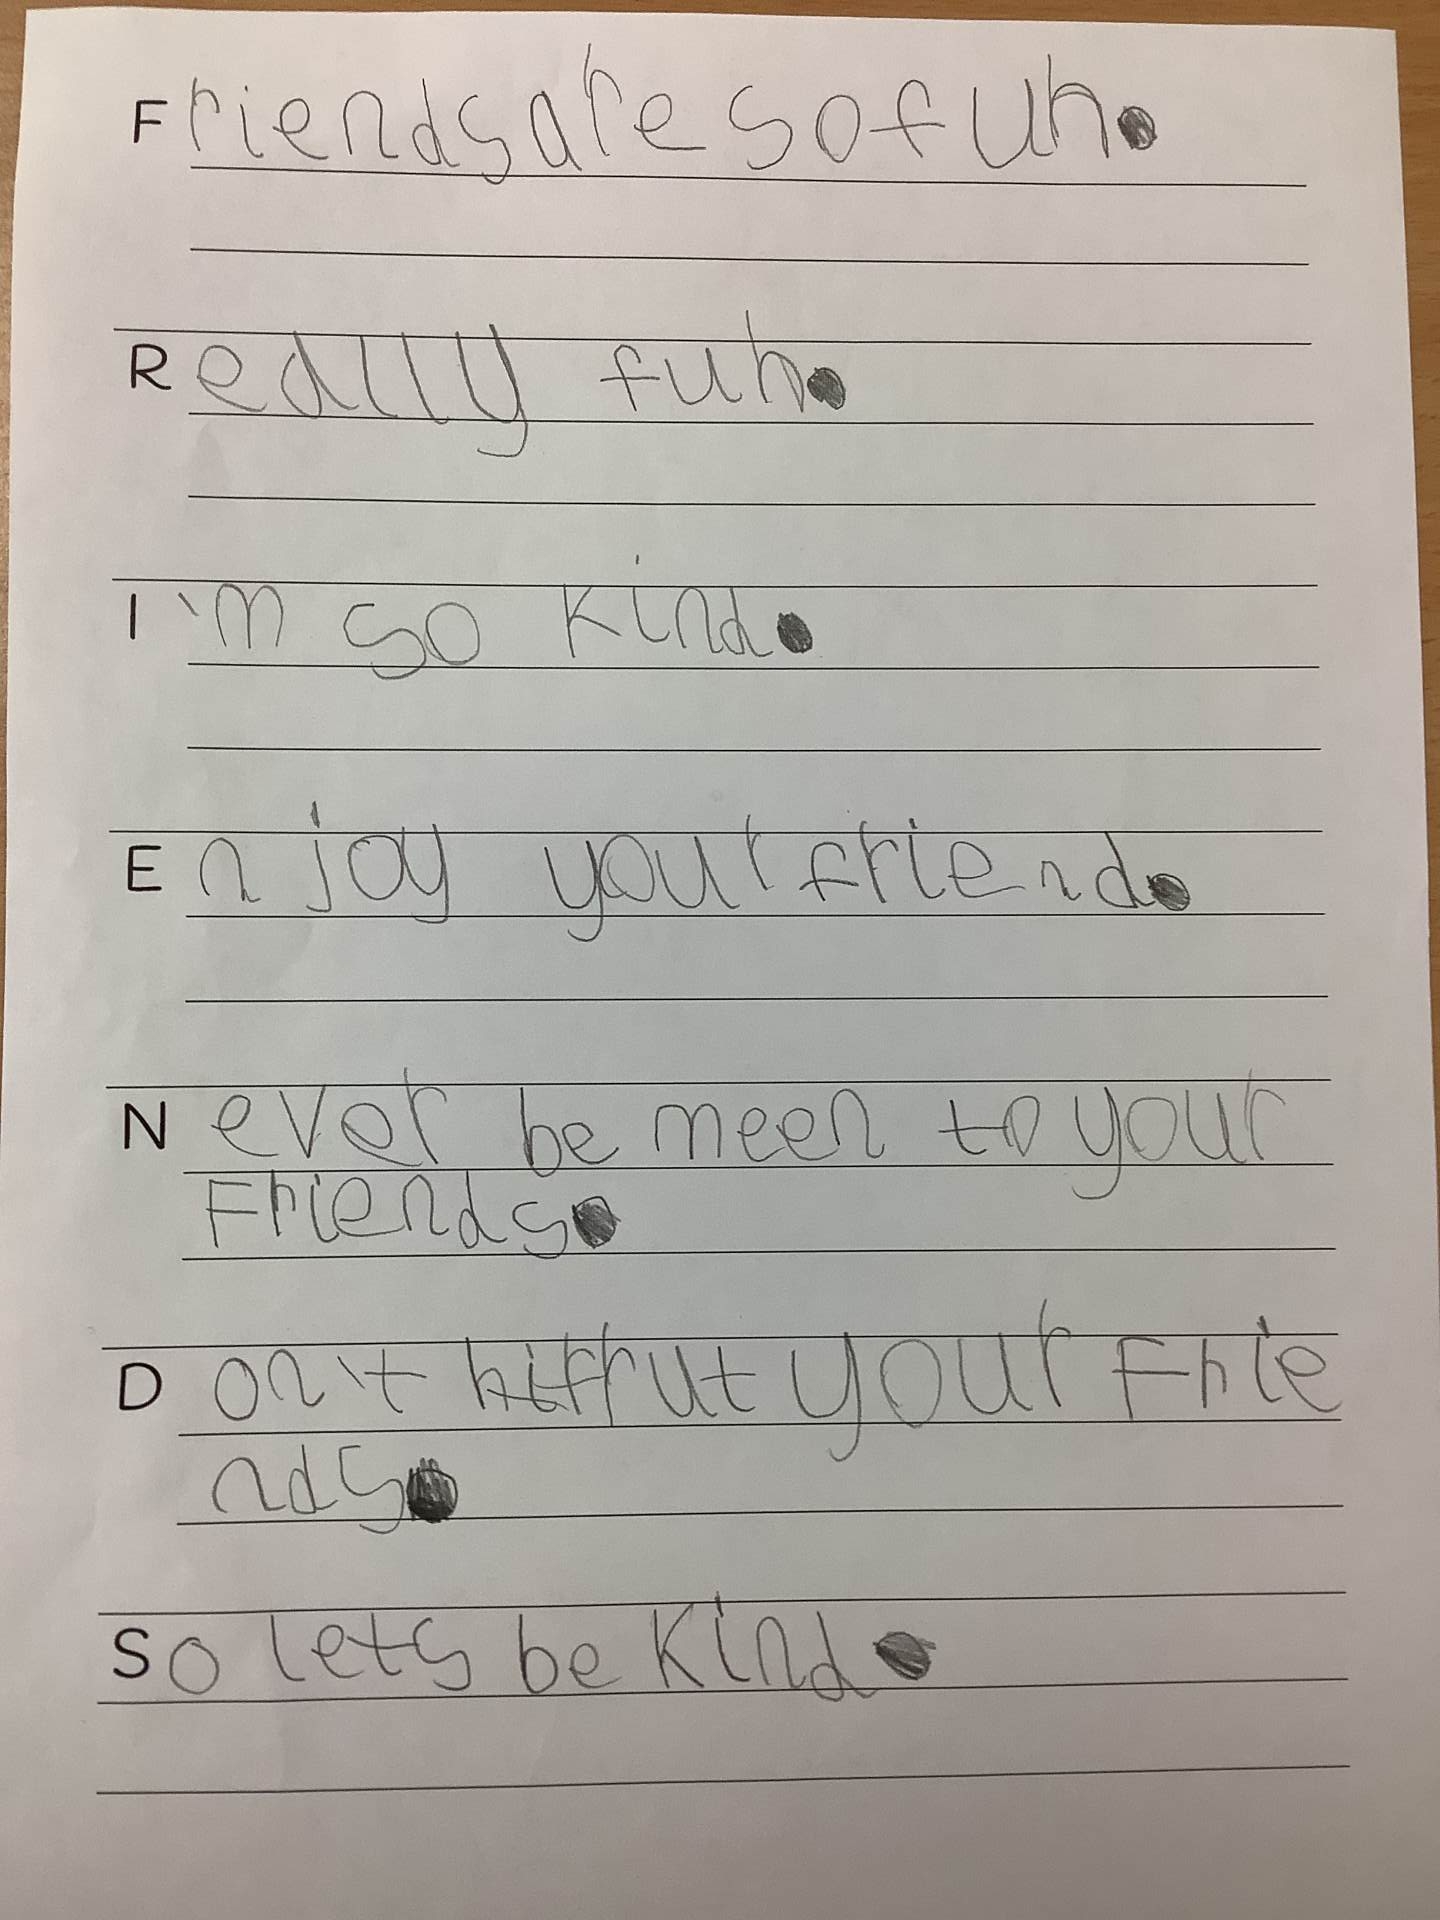 Friends are so fun.
Really fun.
I'm so kind.
Enjoy your friend.
Never be meen to your
Friends.
Don't your Frie
nds.
So lets be kind.